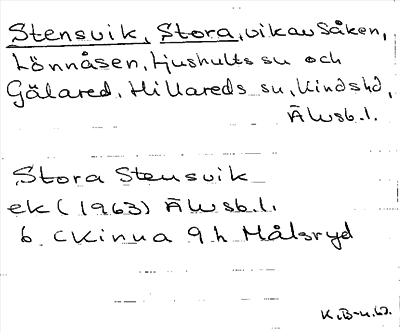 Stensvik, Stora, vik av Såken,
Lönnåsen, Ljushults sn och
Gälared, Hillareds sn, Kinds hd,
Älvsb. l.
Stora Stensvik
ek (1963) Älvsb. l.
6 C Kinna 9 h Målsryd
K.B-n.63.